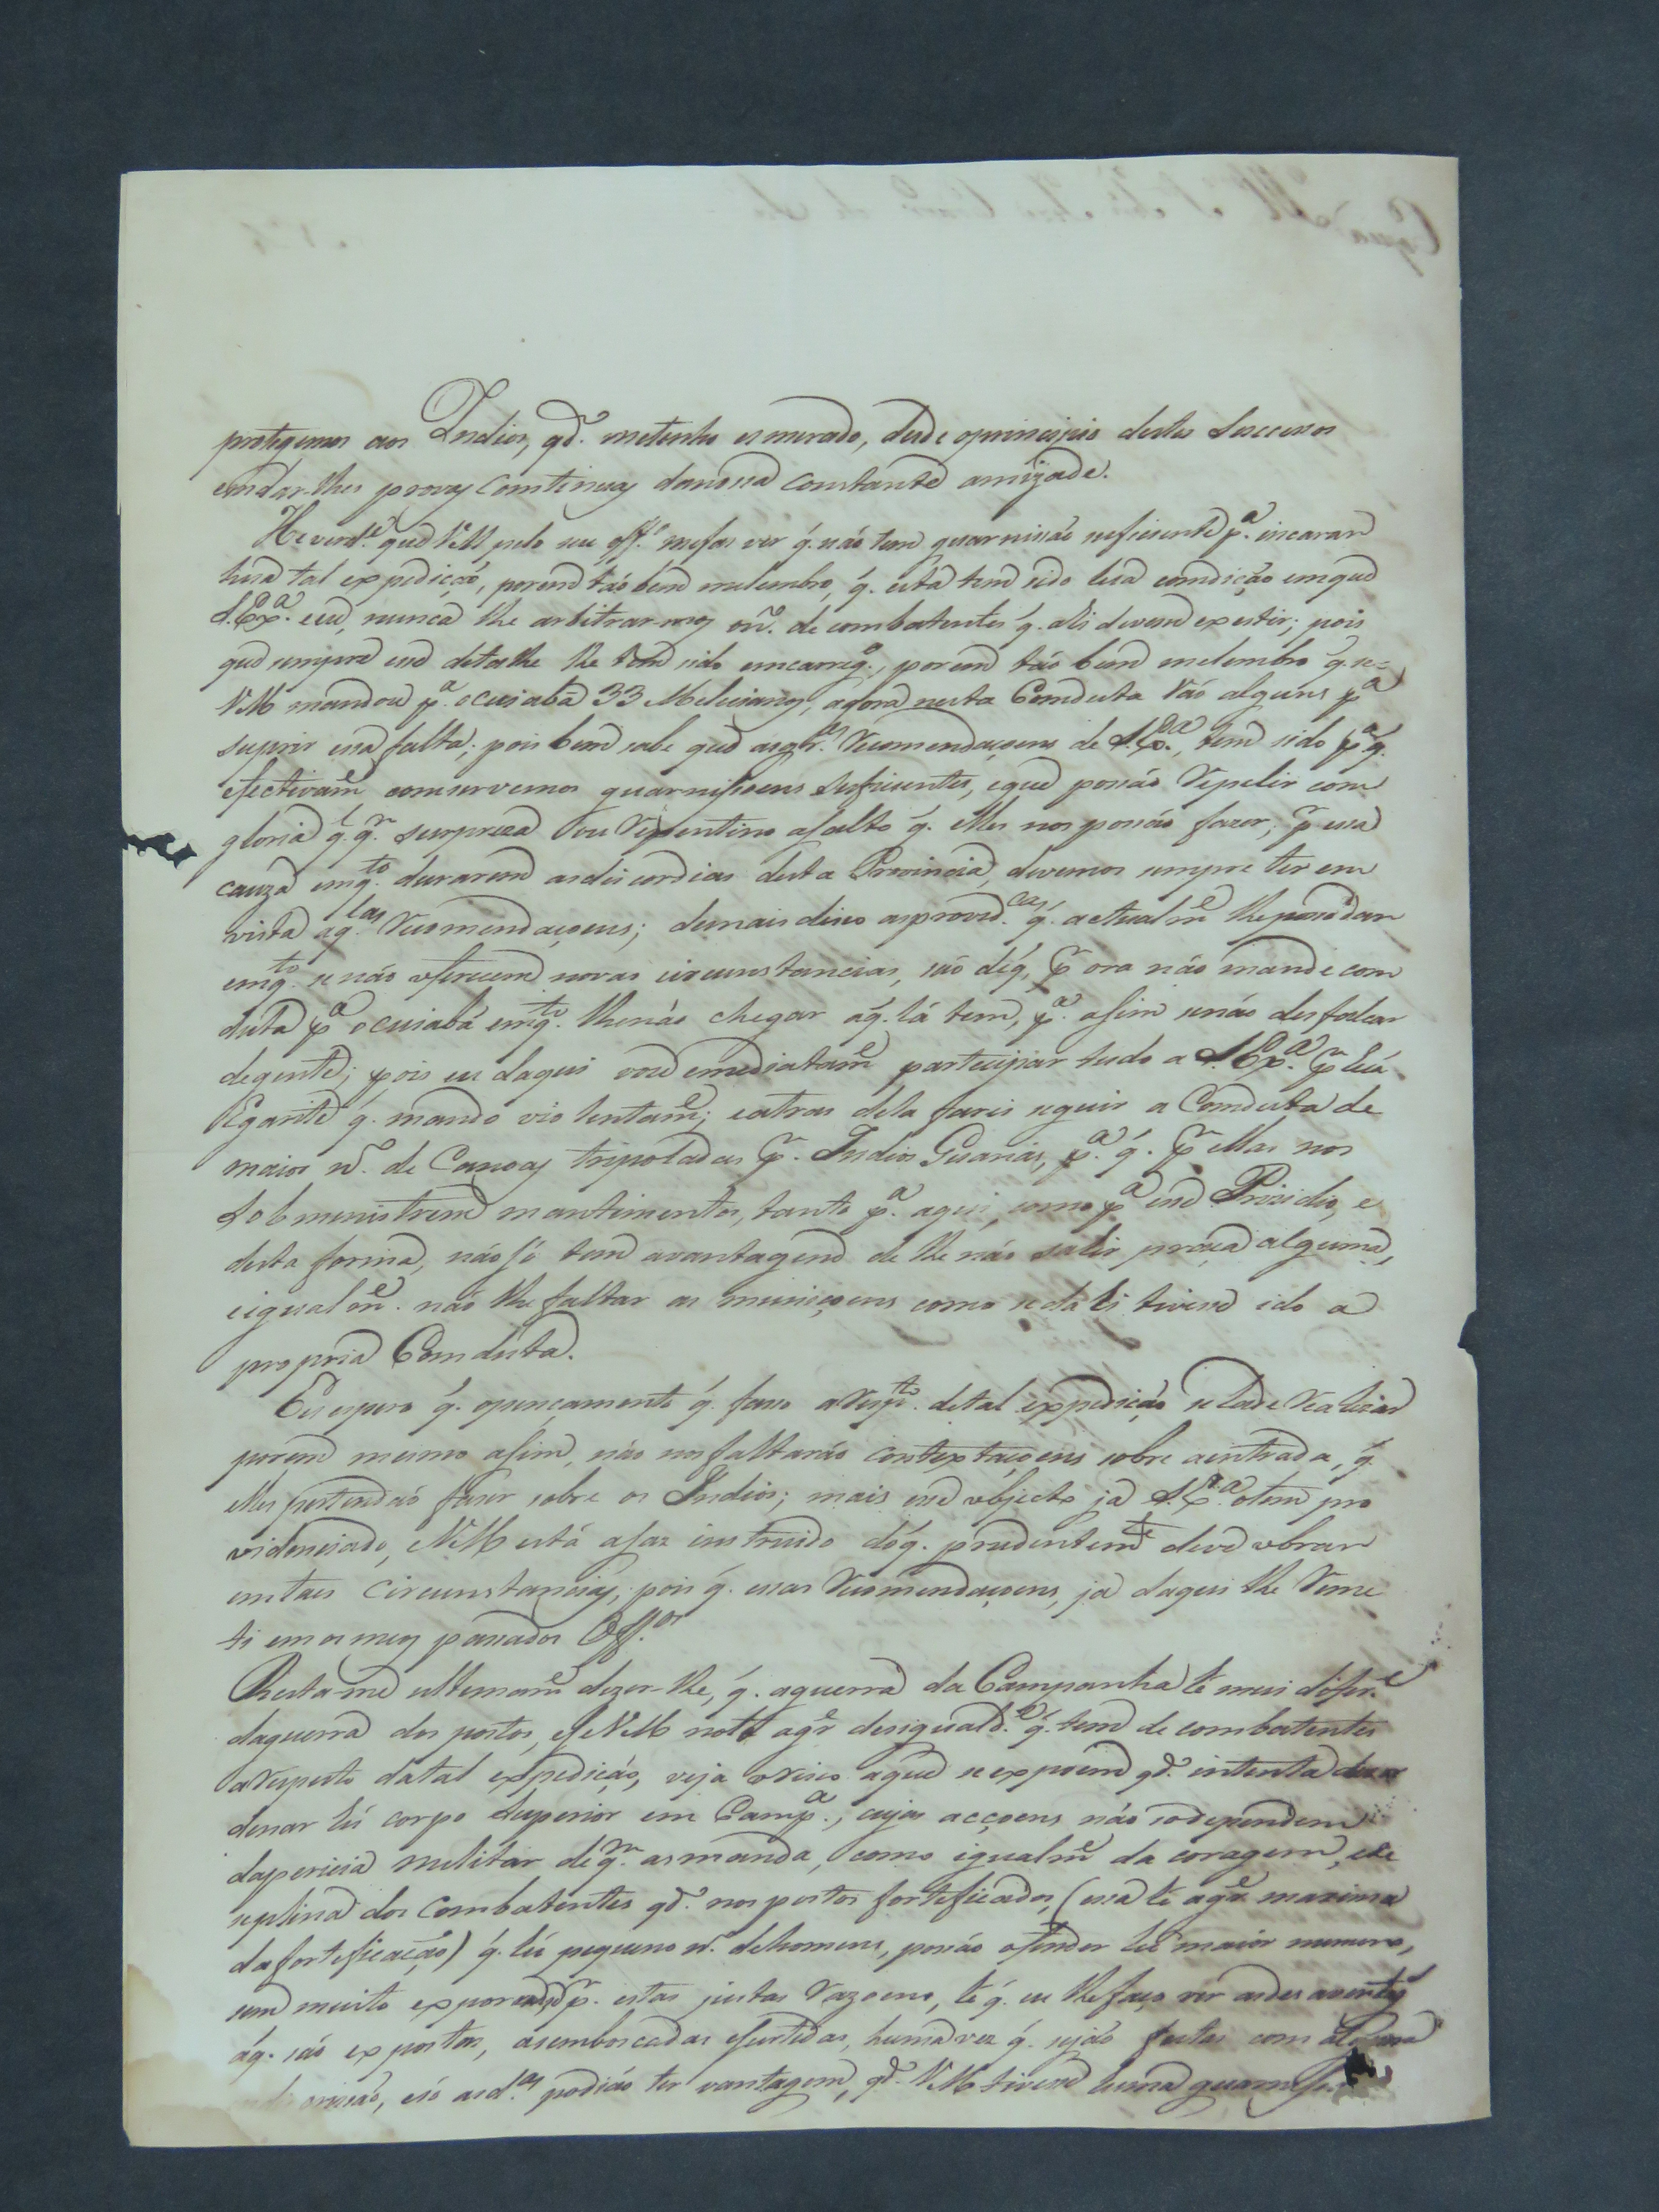 protegemos aos Indios, qdo. metenho esmerado, desde oprincipio destes Successos
emdar-lhes provas Comtinuas danossa Constante amizade.
He verde. que VM pelo seu offo. mefas ver q. não tem guarnissão suficiente pa. incarar
hua tal expedição, porem tão bem melembro, q. esta tem sido hua comdição emque
S. Exa. eeu, nunca lhe arbitrarmos on. de combatentes q. ali devem existir; pois
que sempre esse detalhe lhe tem sido emcarrego., porem tão bem melembro q se
VM mandou pa. ocuiabá 33 Milicianos, agora nesta Comducta Vão alguns pa
suprir essa falta; pois bem sabe que as Recomendaçoens de S. Exa., tem sido pa q.
efectivame comservemos guarnissoens Suficientes, eque possão Repelir com
gloria q.qr. surpreza ou Repentino asalto q. elles nos possão fazer; pr essa
cauza emqto. durarem asdiscordias desta Provincia, devemos sempre ter em
vista aqlas Recomendaçoens; demais disso asprovidcas q. actualme lheposso dar
emqto. se não oferecem novas circunstancias, são déq. pr ora não mande com
duta pa ocuiabá emqto. lhenão chegar aq. lá tem, pa. asim senão desfalcar
degente; pois eu daqui vou emediatame participar tudo a S. Exa. pr huá
Egarite q. mando violentame; eatras dela fareis seguir a Comducta de
maior no. de Canoas tripoladas pr. Indios Guanás, pa. q. pr ellas nos
Sobmenistrem mantimentos, tanto pa. aqui, como pa esse Prezidio, e
desta forma, não só tem avantagem de lhe não sahir praça alguma,
eigualme. não lhe faltar as muniçoens como sedahi tivesse ido a
propria Comducta.
Eu espero q. opençamento q. faço aRespto. detal expedição se hade Realizar
porem mesmo asim, não nosfaltarão contextaçoens sobre aentrada, q.
elles pertendão fazer sobre os Indios; mais esse objecto ja S. Exa. otem pro
videnciado, VM está asaz instruido dóq. prudenteme deve obrar
emtaes Circunstancias, pois q. essas Recomendaçoens, ja daqui lhe Reme
ti em os meus passados Offos
Resta-me ultimame dizer-lhe, q. aguerra da Campanha hé mui difere
daguerra dos postos, eseVM nota agre desigualde. q. tem de combatentes
aRespeito datal expedição, veja orisco aque se expoem qdo. intenta
denar hú corpo Superior em Campa., cujas acçoens não sodependem
dapericia melitar deqm. asmanda, como igualme da coragem, edi
seplina dos Combatentes qdo. nospostos fortificados, (essa hé agre maxima
dafortificação) q. hú pequeno no. dehomens, possão ofender hú maior numero,
sem muito exporem pr. estas justas Razoens, hé q. eu lhefaço ver asdesaventes
áq. são expostos, asemboscadas esurtidas, huma vez q. sejão feitas com
eisó asdas podião ter vantagem, qdo. VM tivesse huma